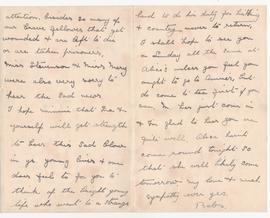 attention, besides so many of
our brave fellows that get
wounded & are left to die
or are taken prisoners.
Miss Stevenson & Miss Mary
were also very sorry to
hear the sad news.
I hope Minnie that Ina &
yourself will get strength
to bear this sad blow
in yr young lives & one
does feel to for you to
think of the bright young
life who went to a strange
land to do his duty for his King
& country never to return,
I shall hope to see you
on Sunday all the same at
Alice's unless you feel you
ought to go to
do come to the first if you
can. Mr has just come in
& Im glad to hear you are
quite well. Alice hasnt
come round tonight so
that she will likely come
tomorrow. My love & much
sympathy ever yrs